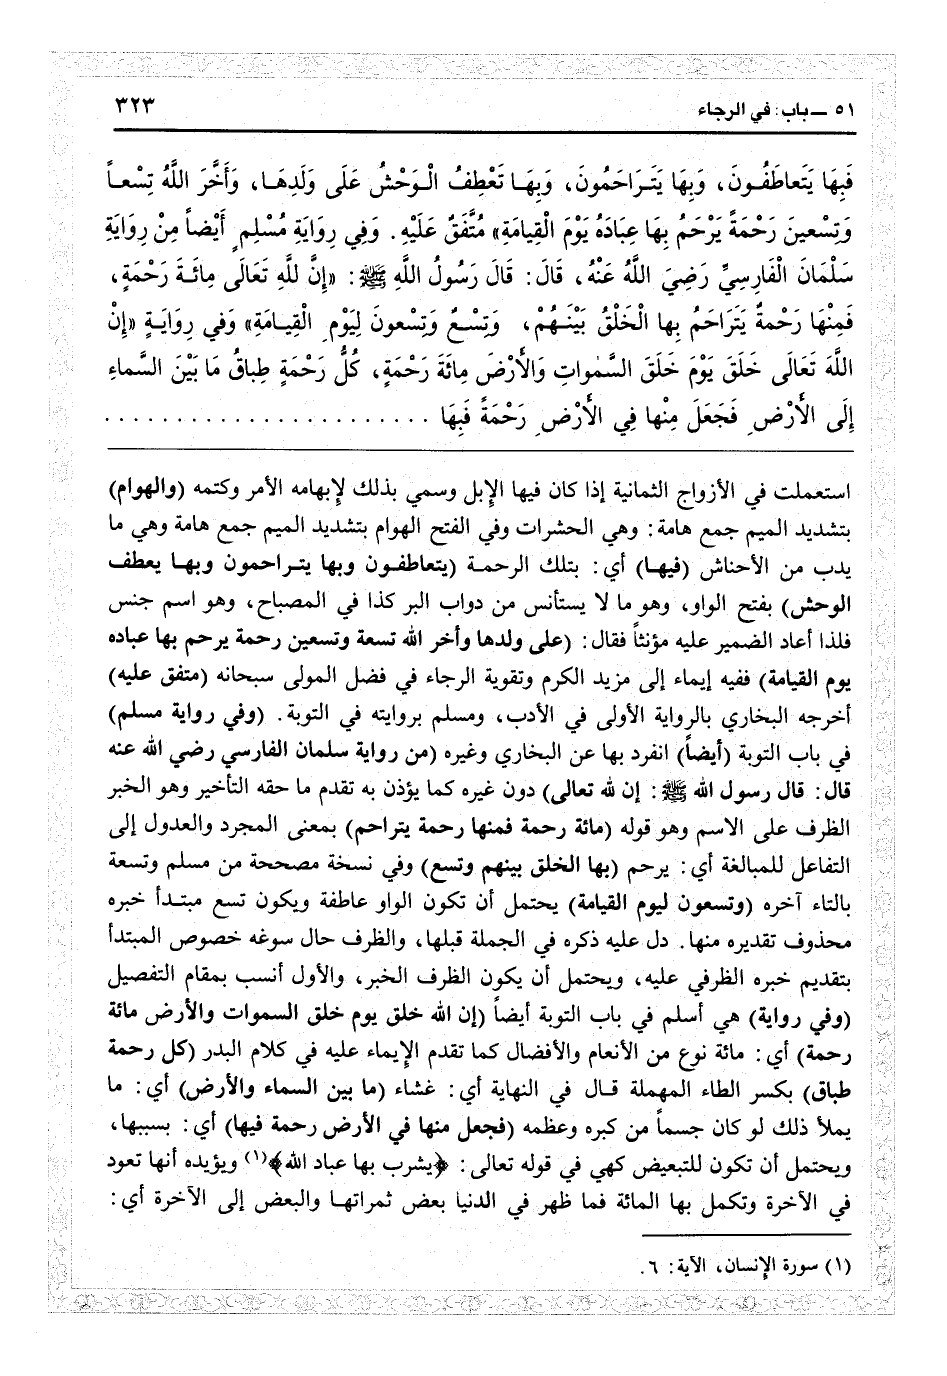 ٥١ ــ باب: في الرجاء ٣٢٣
فَبِهَا يَتَعاطَفُونَ، وَبِهَا يَتَرَاحَمُونَ، وَبِهَا تَعْطِفُ الْوَحْشُ عَلَى وَلَدِهَا، وَأَخَّرَ اللَّهُ تِسْعاً
وَتِسْعينَ رَحْمَةً يَرْحَمُ بِهَا عِبَادَهُ يَوْمَ الْقِيامَةِ» مُتَّفَقٌ عَلَيْهِ. وَفِي رِوَايَةِ مُسْلِمٍ أَيْضاً مِنْ رِوَايَةِ
سَلْمَانَ الْفَارِسِيِّ رَضِيَ اللَّهُ عَنْهُ، قَالَ: قَالَ رَسُولُ اللَّهِ ﷺ: «إِنَّ للَّهِ تَعَالَى مِائَةَ رَحْمَةٍ،
فَمِنْهَا رَحْمةٌ يَتَرَاحَمُ بِها الْخَلْقُ بَيْنَهُمْ، وَتِسْعٌ وَتِسْعونَ لِيَوْمِ الْقِيامَةِ» وَفي رِوَايَةٍ «إِنَّ
اللَّهَ تَعَالَى خَلَقَ يَوْمَ خَلَقَ السَّمٰواتِ وَالْأَرْضَ مِائَةَ رَحْمَةٍ، كُلُّ رَحْمَةٍ طِباقُ مَا بَيْنَ السَّماءِ
إِلَى الْأَرْضِ فَجَعَلَ مِنْها فِي الْأَرْضِ رَحْمَةً فَبِهَا . . . . . . . . . . . . . . . . . . . . . .
استعملت في الأزواج الثمانية إذا كان فيها الإبل وسمي بذلك لإبهامه الأمر وكتمه (والهوام)
بتشديد الميم جمع هامة: وهي الحشرات وفي الفتح الهوام بتشديد الميم جمع هامة وهي ما
يدب من الأحناش (فبها) أي: بتلك الرحمة (يتعاطفون وبها يتراحمون وبها يعطف
الوحش) بفتح الواو، وهو ما لا يستأنس من دواب البر كذا في المصباح، وهو اسم جنس
فلذا أعاد الضمير عليه مؤنثاً فقال: (على ولدها وأخر الله تسعة وتسعين رحمة يرحم بها عباده
يوم القيامة) ففيه إيماء إلى مزيد الكرم وتقوية الرجاء في فضل المولى سبحانه (متفق عليه)
أخرجه البخاري بالرواية الأولى في الأدب، ومسلم بروايته في التوبة. (وفي رواية مسلم)
في باب التوبة (أيضاً) انفرد بها عن البخاري وغيره (من رواية سلمان الفارسي رضي الله عنه
قال: قال رسول الله ﷺ: إن لله تعالى) دون غيره كما يؤذن به تقدم ما حقه التأخير وهو الخبر
الظرف على الاسم وهو قوله (مائة رحمة فمنها رحمة يتراحم) بمعنى المجرد والعدول إلى
التفاعل للمبالغة أي: يرحم (بها الخلق بينهم وتسع) وفي نسخة مصححة من مسلم وتسعة
بالتاء آخره (وتسعون ليوم القيامة) يحتمل أن تكون الواو عاطفة ويكون تسع مبتدأ خبره
محذوف تقديره منها. دل عليه ذكره في الجملة قبلها، والظرف حال سوغه خصوص المبتدأ
بتقديم خبره الظرفي عليه، ويحتمل أن يكون الظرف الخبر، والأول أنسب بمقام التفصيل
(وفي رواية) هي أسلم في باب التوبة أيضاً (إن الله خلق يوم خلق السموات والأرض مائة
رحمة) أي: مائة نوع من الأنعام والأفضال كما تقدم الإيماء عليه في كلام البدر (كل رحمة
طباق) بكسر الطاء المهملة قال في النهاية أي: غشاء (ما بين السماء والأرض) أي: ما
يملأ ذلك لو كان جسماً من كبره وعظمه (فجعل منها في الأرض رحمة فيها) أي: بسببها،
ويحتمل أن تكون للتبعيض كهي في قوله تعالى: ﴿يشرب بها عباد الله﴾(١) ويؤيده أنها تعود
في الآخرة وتكمل بها المائة فما ظهر في الدنيا بعض ثمراتها والبعض إلى الآخرة أي:
(١) سورة الإنسان، الآية: ٦.